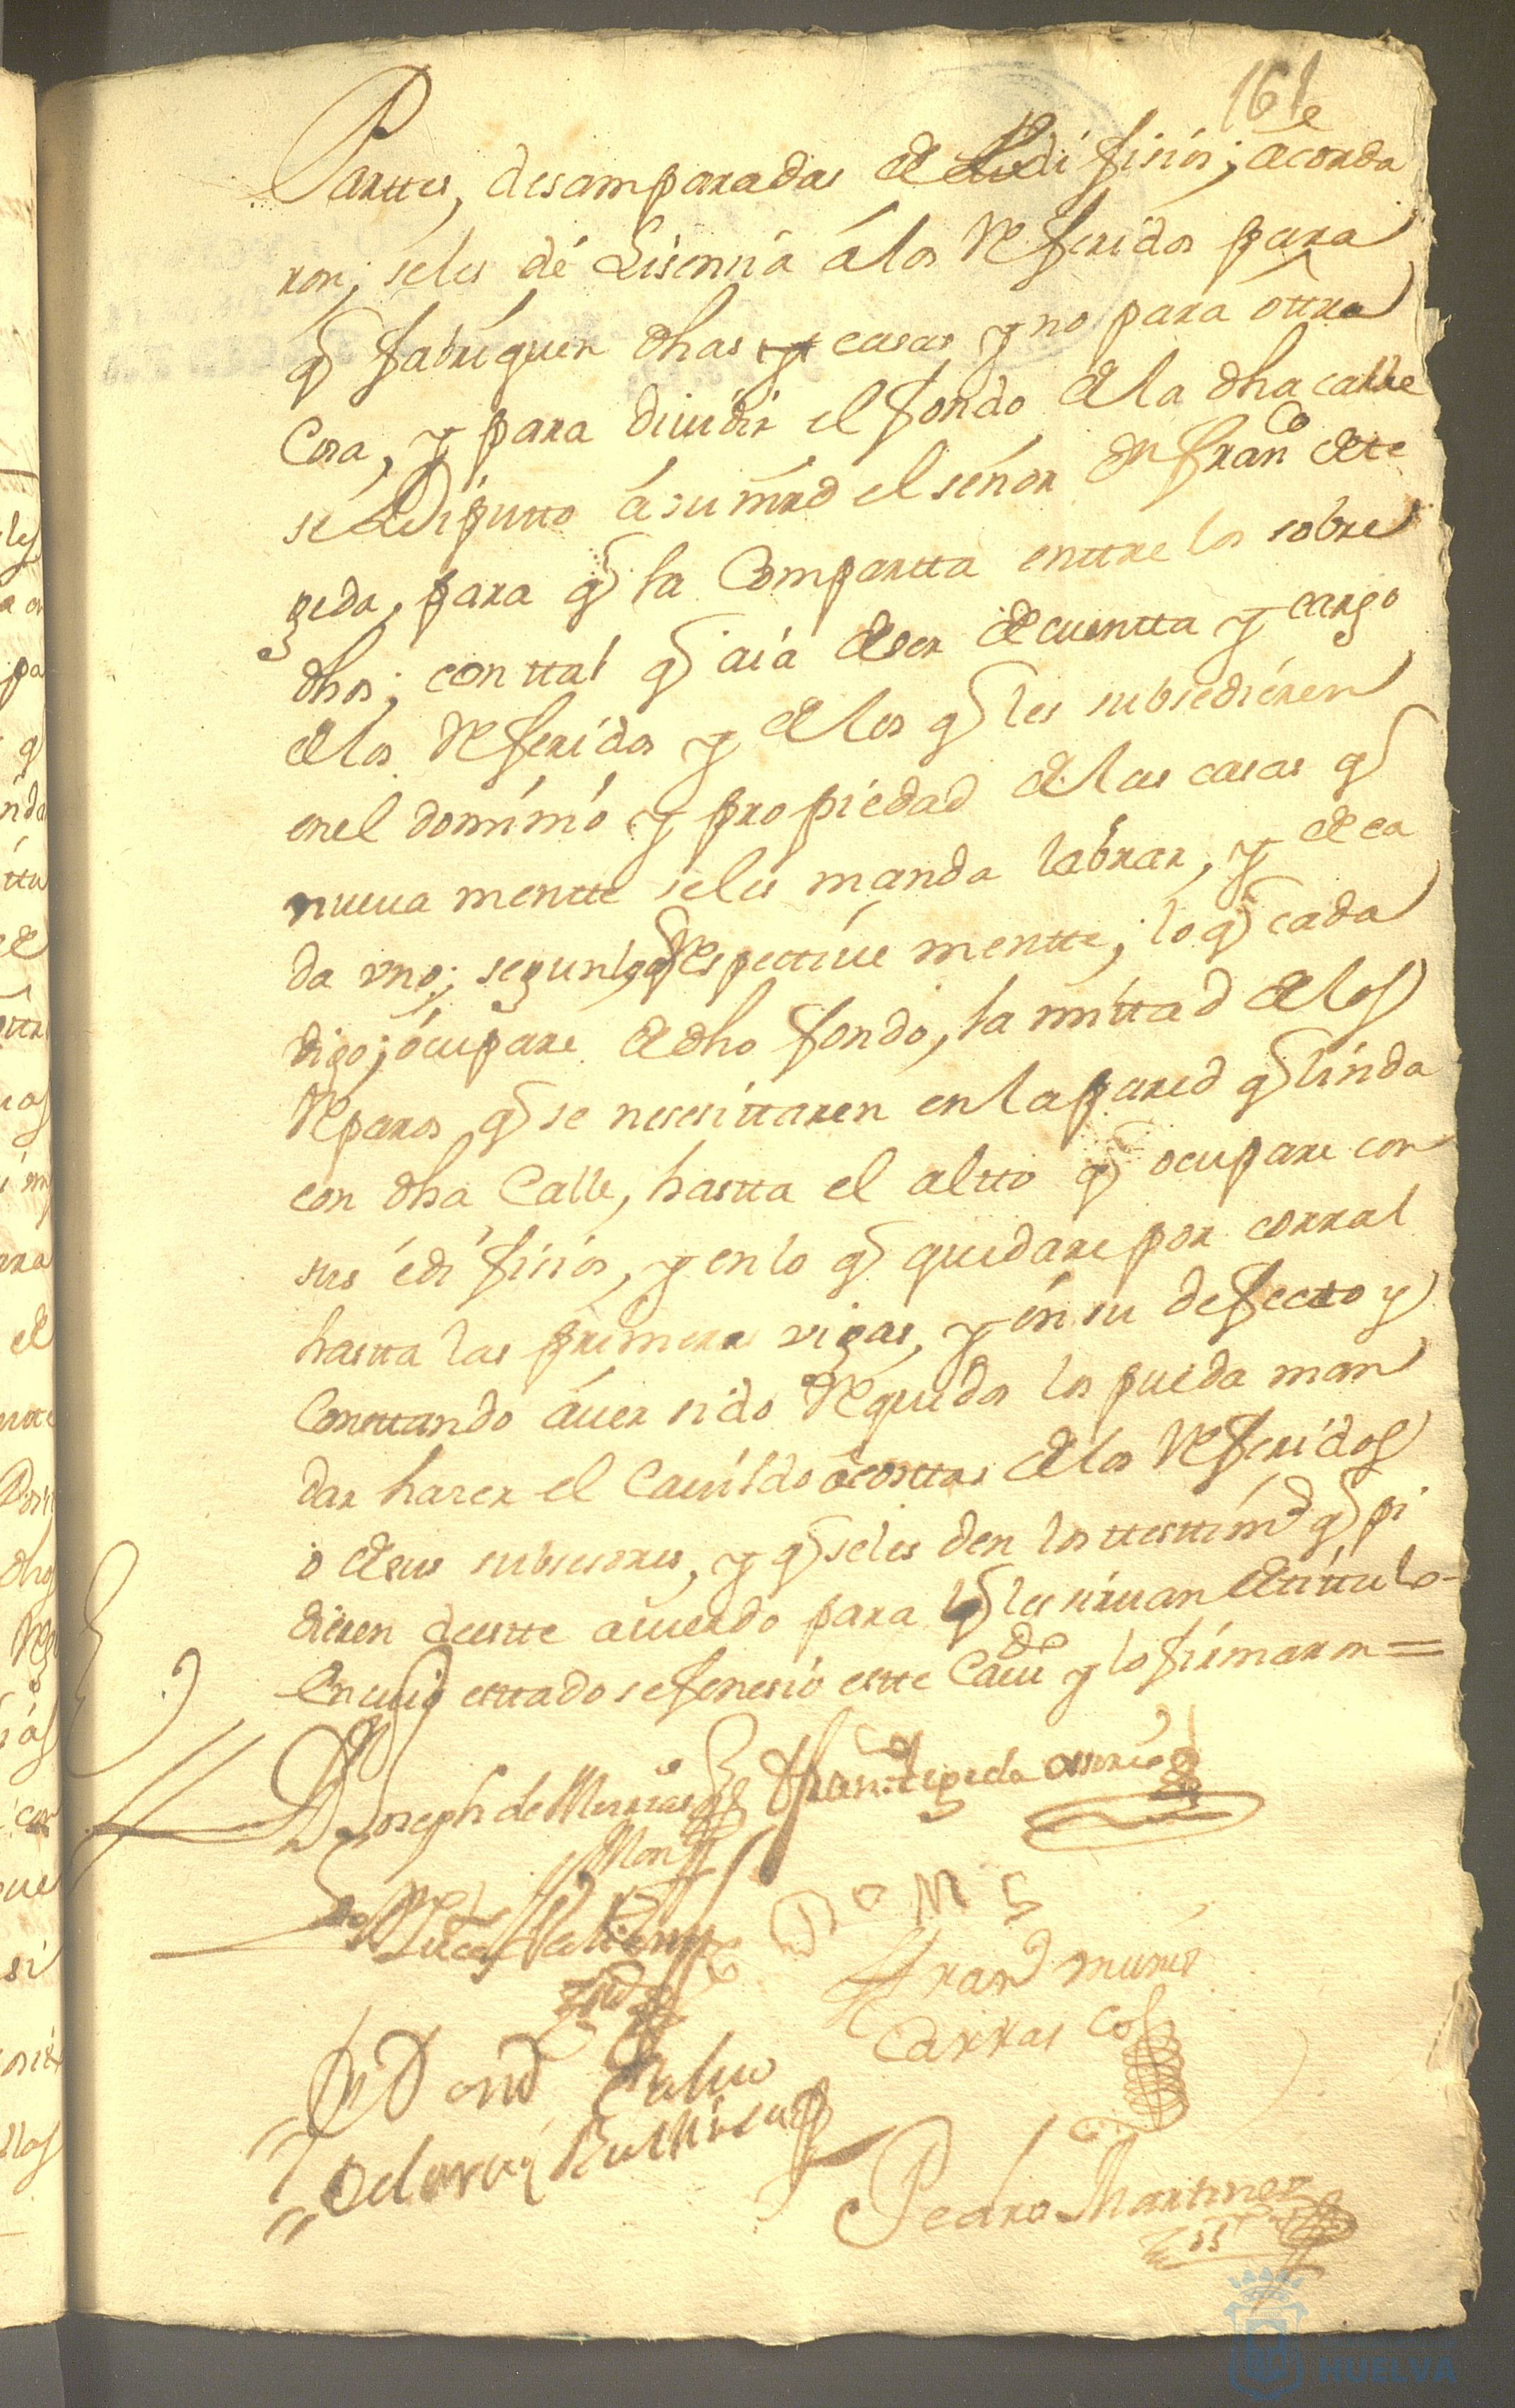 161
Parttes, desamparadas de edifisiós; acorda
ron, seles dé Lisensiá á los Referidos para
q fabriquen dhas casas y no para óttra
Cosa, y para diuidir el fondo de la dha calle
se Diputto á su mrd el señor Dn Franco de te
geda, para q la Compartta enttre los sobre
dhos; con ttal q aiá de ser de cuentta y cargo
de los Referidos y de los q les subsediéren
en el domínió y propiedad de las casas q
nueua mentte seles manda labrar, y de ca
da vno; segun lo q Respecttiue mentte; lo q cada
digo; ócupare de dho fondo, la mittad de los
Reparos q se nesesittaren en la pared q linda
con dha Calle, hastta el altto q ocupare con
sus édifisiós, y en lo q quedare por corral
hastta las primeras vigas, y én su defectto y
Constando áuer sido Requeridos los pueda man
dar haser el Cauildo á costtas de los Referidos
o de sus subsesores, y q seles den los ttesttimos q pi
dieren de estte acuerdo para q les siruan de títtulo
En cuio esttado se fenesió estte Caudo y lo firmaron =
Dn Joseph de
Dn Franco de tegeda osorio
Mon
D o M s
Lucas
Frano muñis
Carrasco
Pedro Martinez
HUELVA